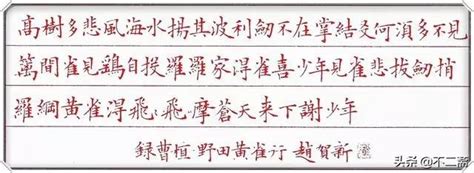 高樹多悲風海水揚其波利劒不在掌結友何須多不見
籬間雀見鷂自投羅羅家得雀喜少年見雀悲拔劒捎
羅網黄雀得飛〻飛〻摩蒼天来下謝少年
録曹植野田黄雀行趙賀新
头条 @不二斋